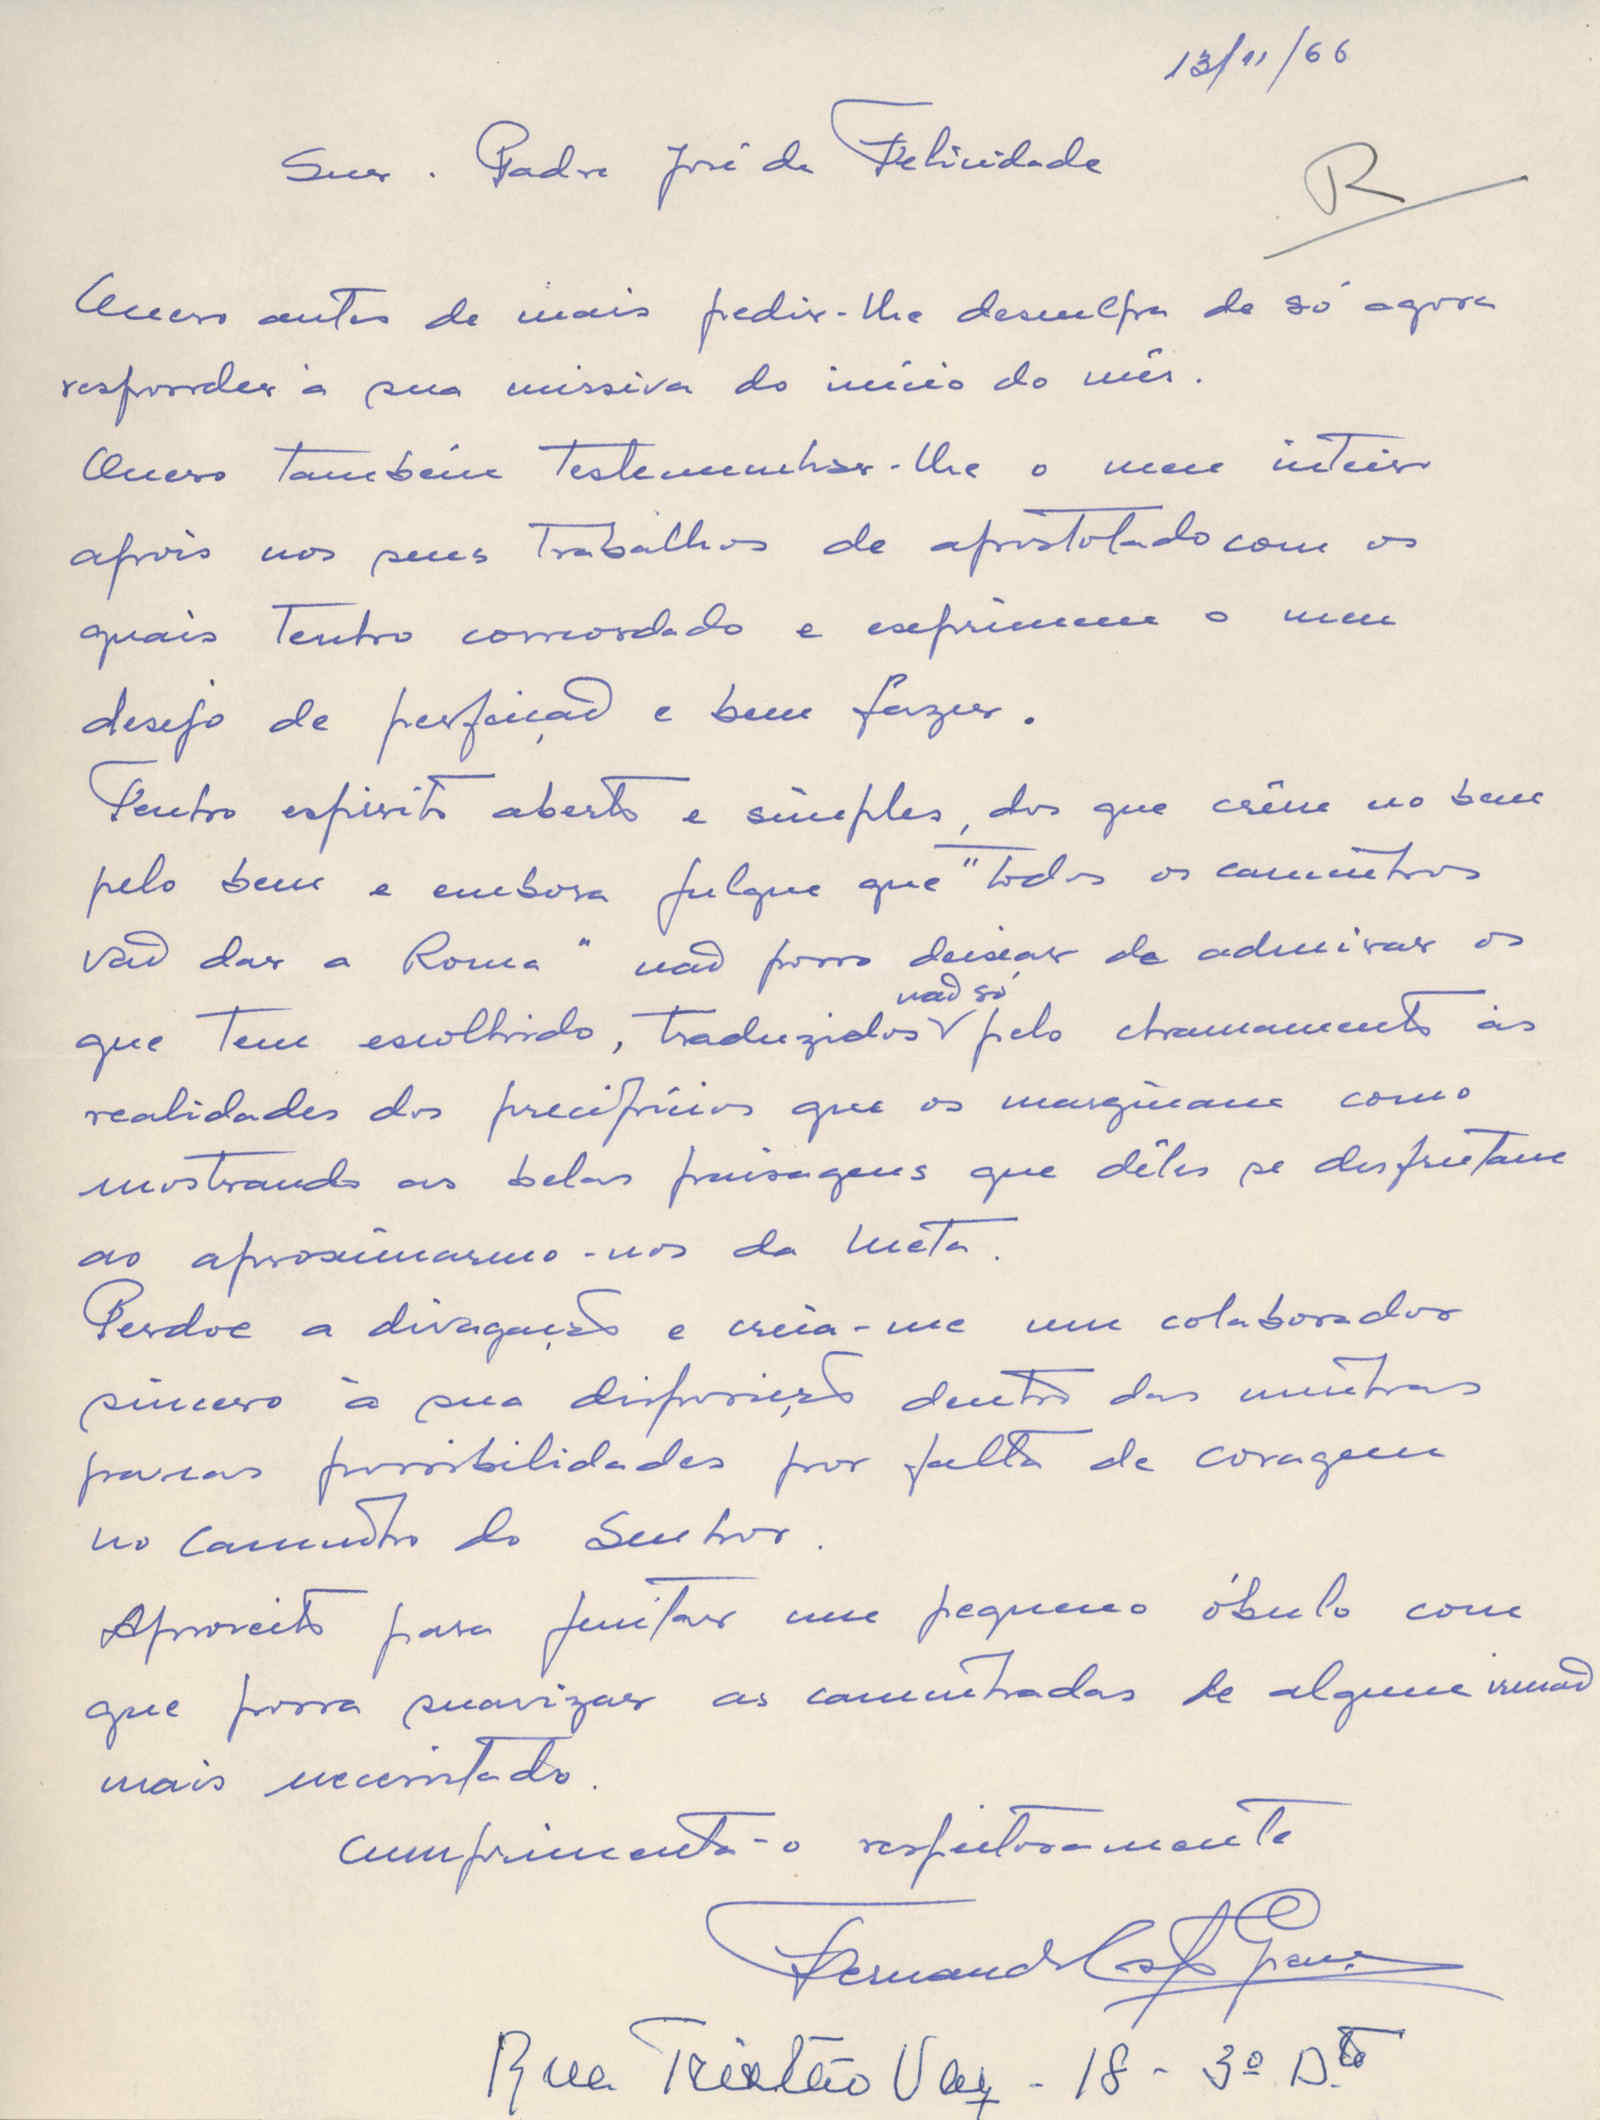 13/11/66
Snr. Padre José da Felicidade
R
Quero antes de mais pedir-lhe desculpa de só agora
responder à sua missiva do início do mês.
Quero também testemunhar-lhe o meu inteiro
apoio nos seus trabalhos de apostolado com os
quais tenho concordado e exprimem o meu
desejo de perfeição e bem fazer.
Tenho espírito aberto e simples, dos que crêm no bem
pelo bem e embora julgue que "todos os caminhos
vão dar a Roma" não posso deixar de admirar os
não só
que tem escolhido, traduzidos pelo chamamento às
realidades dos precipícios que os marginam como
mostrando as belas paisagens que dêles se desfrutam
ao aproximarmo-nos da meta.
Perdoe a divagação e creia-me um colaborador
sincero à sua disposição dentro das minhas
poucas possibilidades por falta de coragem
no caminho do Senhor.
Aproveito para juntar um pequeno óbulo com
que possa suavizar as caminhadas de algum irmão
mais necessitado.
Cumprimenta-o respeitosamente
Fernando
Rua Tristão Vaz - 18 - 3º D.to